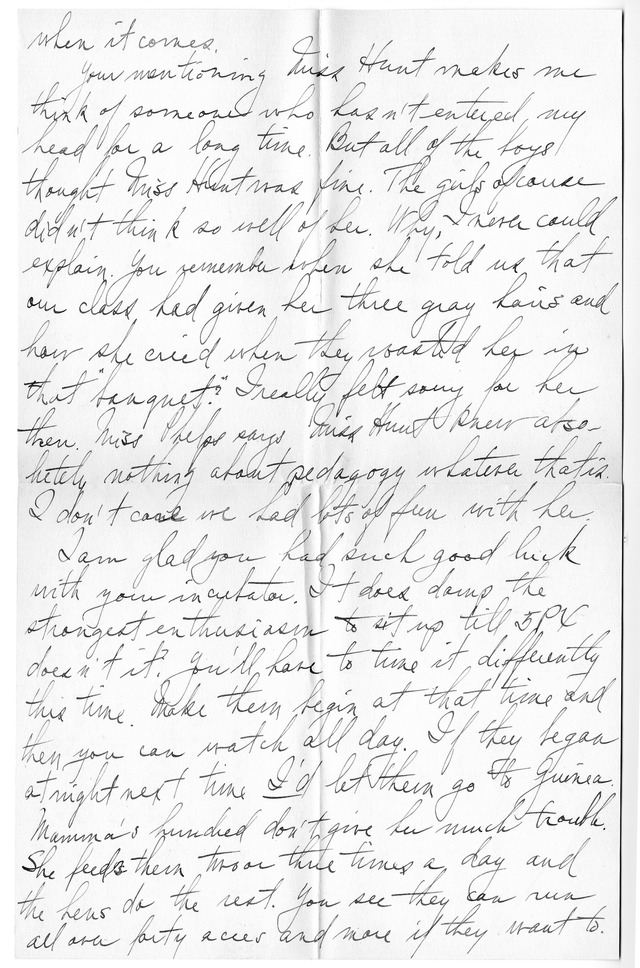 when it comes.
Your mentioning Miss Hunt makes me
think of someone who hasn't entered my
head for a long time. But all of the boys
thought Miss Hunt was fine. The girls of couse
didn't think so well of her. Why, I never could
explain. You remember when she told us that
our class had given her three gray hairs and
how she cried when they roasted her in
that "banquet." I really felt sorry for her
then. Miss Phelps says Miss Hunt knew abso-
lutely nothing about pedagogy whatever that is.
I don't care we had lots of fun with her.
I am glad you had such good luck
with your incubator. It does damp the
strongest enthusiasm to sit up till
doesn't it? You'll have to time it differently
this time. Make them begin at that time and
then you can watch all day. If they began
at night next time I'd let them go to Guinea.
Mamma's hundred don't give her much trouble.
She feeds them two or three times a day and
the hens do the rest. You see they can run
all over forty acres and more if they want to.